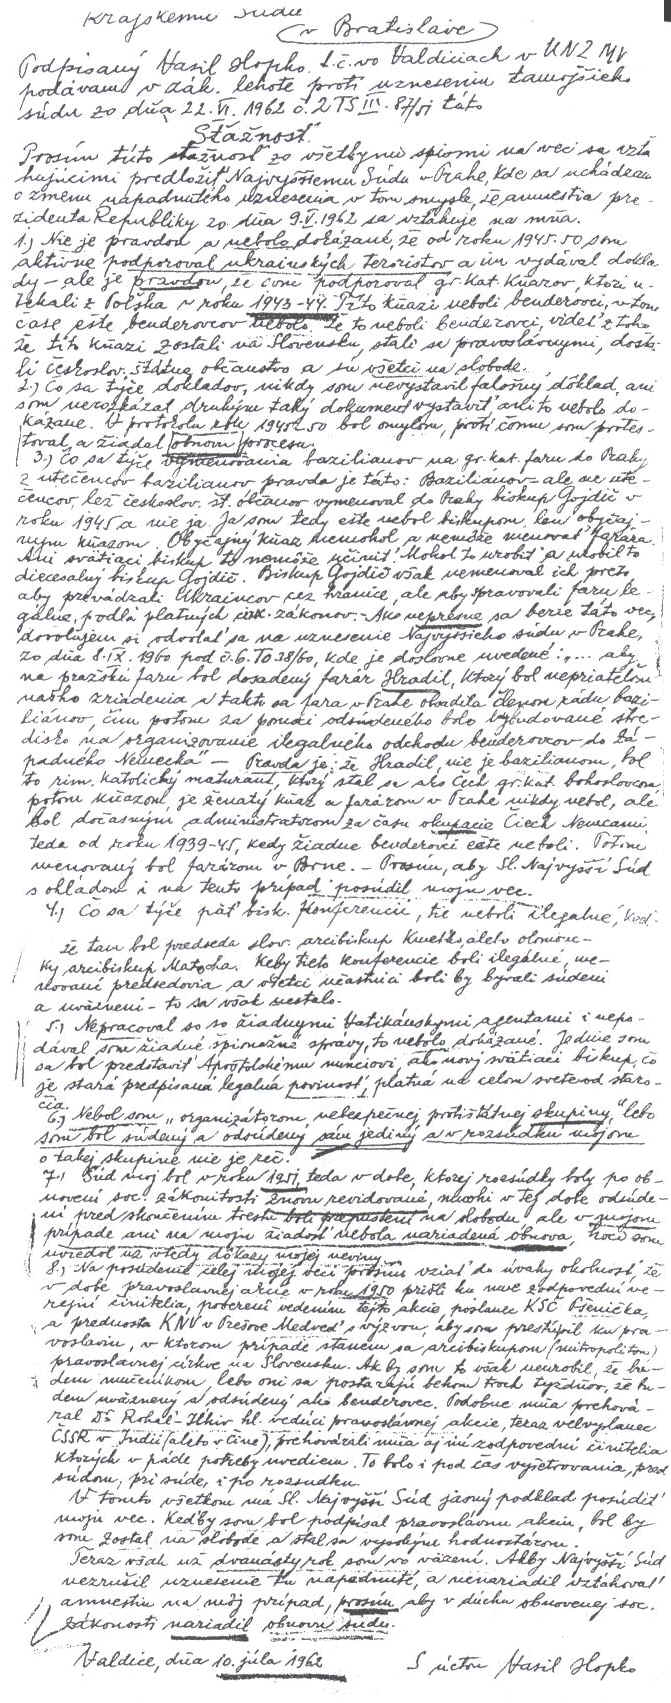 Krajskému súdu
v Bratislave
Podpísaný Vasil Hopko t.č. vo Valdiciach v ÚNZ MV
podávam v zák. lehote proti uzneseniu tamojšieho
súdu zo dňa 22.VI.1962 č. 2 TS III. 87/51 túto
Sťažnosť.
Prosím túto sťažnosť so všetkými spismi na vec sa vzťa
hujúcimi predložiť Najvyššiemu Súdu v Prahe, kde sa uchádzam
o zmenu napadnutého uznesenia v tom smysle, že amnestia pre-
zidenta Republiky zo dňa 9.V.1962 sa vzťahuje na mňa.
1.) Nie je pravdou a nebolo dokázané, že od roku 1945-50 som
aktívne podporoval ukrajinských teroristov a im vydával dokla-
dy - ale je pravdou, že som podporoval gr. kat. kňazov, ktorí u-
tekali z Poľska v roku 1943-44. Títo kňazi neboli benderovci, v tom
čase ešte benderovcov nebolo. Že to neboli benderovci, vidieť z toho,
že títo kňazi zostali na Slovensku, stali sa pravoslávnymi, dosta-
li Českoslov. štátne občanstvo a sú všetci na slobode.
2.) Čo sa týče dokladov, nikdy som nevystavil falošný doklad, ani
som nerozkázal druhým taký dokument vystaviť, ani to nebolo do-
kázané. V protokole 1945-50 bol omylom, proti čomu som protes-
toval, a žiadal obnovu procesu.
3.) Čo sa týče vymenovania baziliánov na gr. kat. faru do Prahy
z utečencov baziliánov pravda je táto: Baziliánov - ale nie ute-
čencov, lež českoslov. št. občanov vymenoval do Prahy biskup Gojdič v
roku 1945 a nie ja. Ja som tedy ešte nebol biskupom, len obyčaj-
ným kňazom. Obyčajný kňaz nemohol a nemôže menovať farára.
Ani svätiaci biskup to nemôže učiniť. Mohol to urobiť a urobil to
diecesálny biskup Gojdič. Biskup Gojdič však nemenoval ich preto,
aby prevádzali Ukrajincov cez hranice, ale aby spravovali faru le-
gálne, podľa platných zákonov. - Ako nepresne sa berie táto vec,
dovolujem si odvolať sa na uznesenie Najvyššieho súdu v Prahe,
zo dňa 8.IX.1960 pod č. 6. TO 38/60, kde je doslovne uvedené: "... aby
na pražskú faru bol dosadený farár Hradil, ktorý bol nepriateľom
nášho zriadenia a takto sa fara v Prahe obsadila členom rádu bazi-
liánov, čím potom za pomoci odsúdeného bolo vybudované stre-
disko na organizovanie ilegálneho odchodu benderovcov do Zá-
padného Nemecka" - Pravda je, že Hradil, nie je baziliánom, bol
to rim. katolícky maturant, ktorý stal sa ako Čech gr. kat. bohoslovcom,
potom kňazom, je ženatý kňaz a farárom v Prahe nikdy nebol, ale
bol dočasným administrátorom za času okupacie Čiech Nemcami
teda od roku 1939-45, kedy žiadne benderovci ešte neboli. Potom
menovaný bol farárom v Brne. - Prosím, aby Sl. Najvyšší Súd
s ohľadom i na tento prípad posúdil moju vec.
4.) Čo sa týče päť bisk. konferencií, tie neboli ilegálne, keď
že tam bol predseda slov. arcibiskup Kmeťko, alebo olomou-
ký arcibiskup Matocha. Keby tieto konferencie boli ilegálne, me-
novaní predsedovia a všetci učastníci boli by bývali súdení
a uväznení - to sa však nestalo.
5.) Nepracoval so so žiadnymi Vatikánskymi agentami i nepo-
dával som žiadné špionážné správy, to nebolo dokázané. Jedine som
sa bol predstaviť Apoštolskému nunciovi, ako nový svätiaci biskup, čo
je stará predpísaná legálna povinosť, platná na celom svete od staro-
čia.
6.) Nebol som "organizátorom nebezpečnej protištátnej skupiny", lebo
som bol súdený a odsúdený sám jediný a v rozsudku mojom
o takej skupine nie je reč.
7.) Súd moj bol v roku 1951, teda v dobe, ktorej rozsudky boly po ob-
novení soc. zákonitosti znovu revidované, mnohí v tej dobe odsúde-
ní pred skončením trestu boli prepustení na slobodu, ale v mojom
prípade ani na moju žiadosť nebola nariadená obnova, hoci som
uviedol už vtedy dôkazy mojej neviny.
8.) Na posúdenie celej mojej veci prosím vziať do úvahy okolnosť, že
v dobe pravoslávnej akcie v roku 1950 prišli ku mne zodpovední ve-
rejní činitelia, poverení vedením tejto akcie poslanec KSČ Pšenička,
a prednosta KNV v Prešove Medveď s výzvou, aby som prestúpil ku pra-
voslaviu, v ktorom prípade stanem sa arcibiskupom (mitropolitom)
pravoslávnej církve na Slovensku. Ak by som to však neurobil, že bu-
dem mučeníkom, lebo oni sa postarajú behom troch týždňov, že bu-
dem uväznený a odsúdený ako benderovec. Podobne mňa prehová-
ral Dr Rohaľ-Ilkiv hl. vedúci pravoslávnej akcie, teraz veľvyslanec
ČSSR v Indii (alebo v Číne), prehovárali mňa aj iní zodpovední činitelia
ktorých v páde potreby uvediem. To bolo i pod čas vyšetrovania, pred
súdom, pri súde, i po rozsudku.
V tomto všetkom má Sl. Najvyšší Súd jasný podklad posúdiť
moju vec. Keďby som bol podpísal pravoslávnu akciu, bol by
som zostal na slobode a stal sa vysokým hodnostárom.
Teraz však už dvanásty rok som vo väzení. Akby Najvyšší Súd
nezrušil uznesenie tu napadnuté, a nenariadil vzťahovať
amnestiu na môj prípad, prosím aby v duchu obnovenej soc.
zákonosti nariadil obnovu súdu.
Valdice, dňa 10. júla 1962 S úctou Vasil Hopko